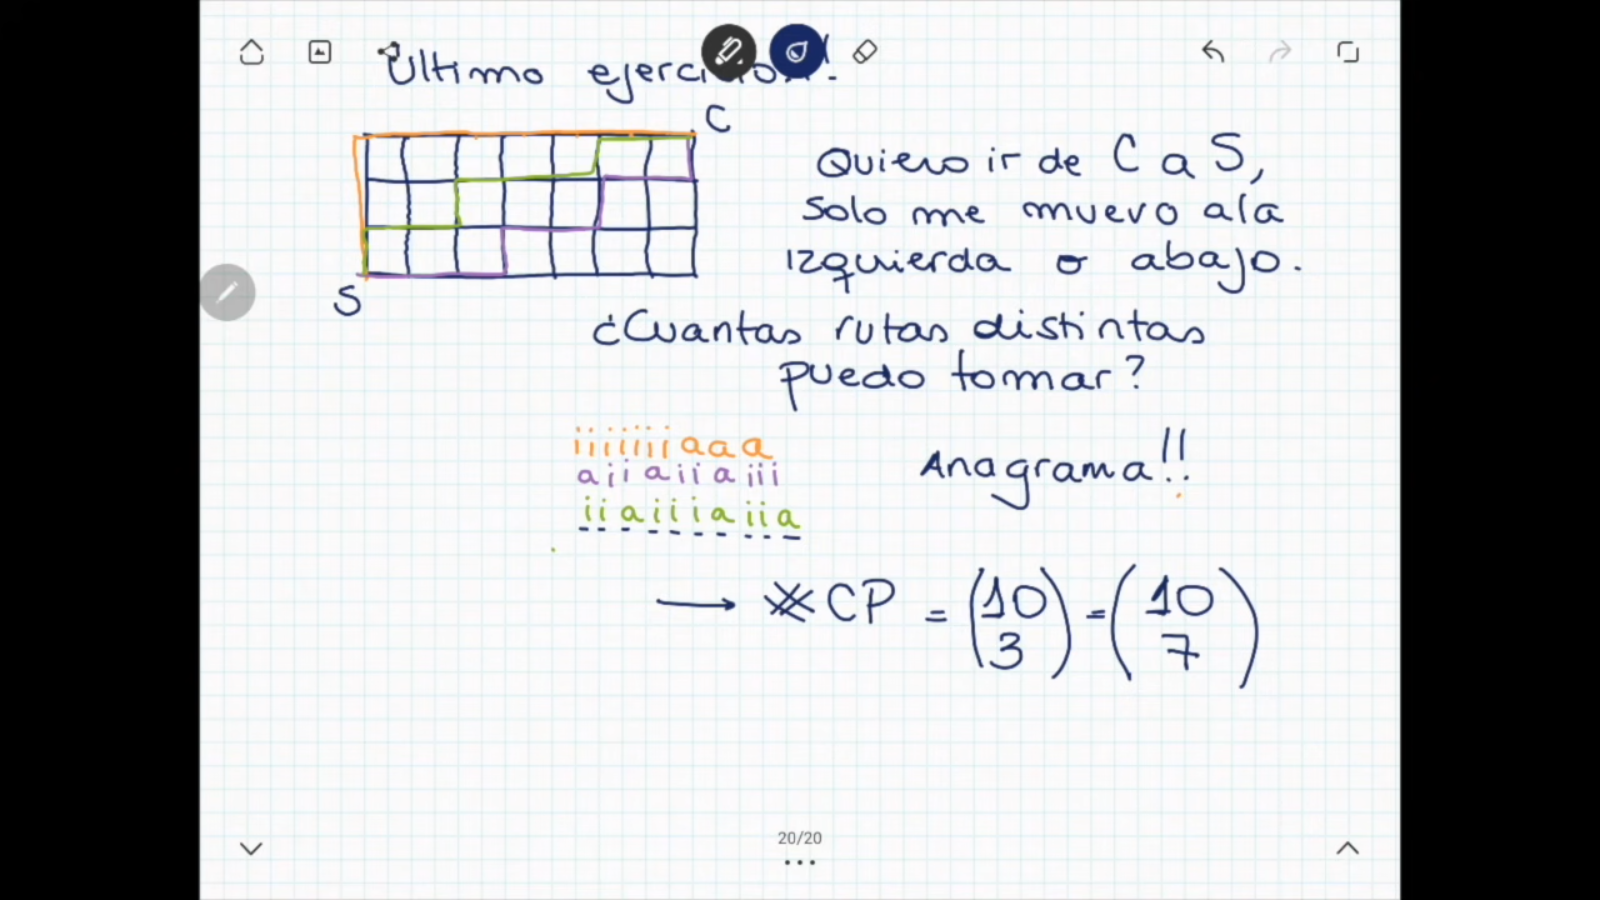 Ultimo ejerci
C
S
Quiero ir de C a S,
solo me muevo a la
izquierda o abajo.
¿Cuantas rutas distintas
puedo tomar?
iiiiiiiaaa
aiiaiiaiii
iiaiiiaiia
Anagrama!!
→ #CP = (10 3) = (10 7)
20/20